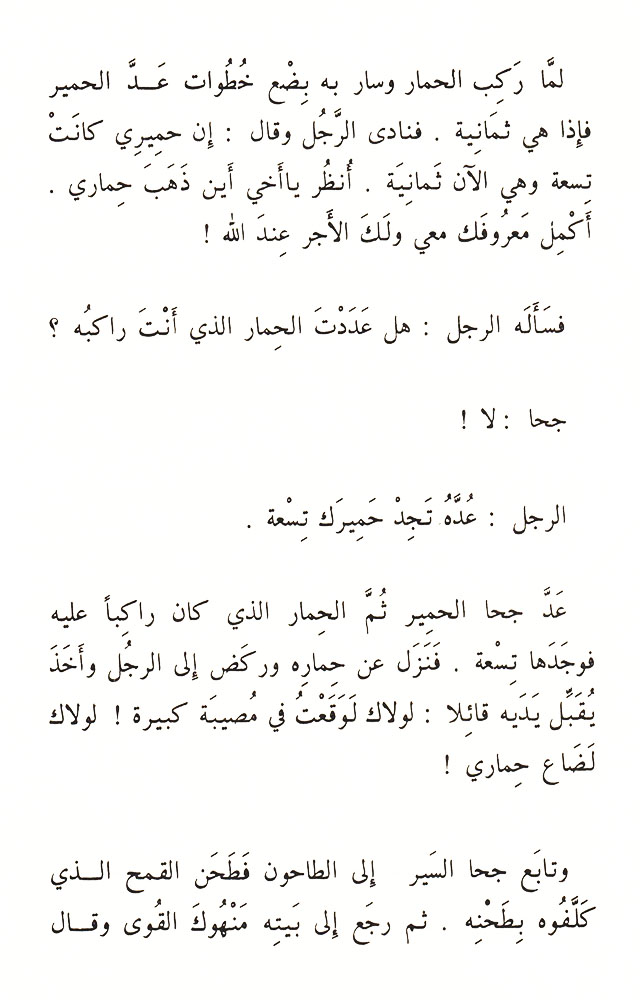 لمَّا رَكِب الحمار وسار به بِضْع خُطُوات عَــدَّ الحمير
فإذا هي ثمَانِية . فنادى الرَّجُل وقال : إن حمِيرِي كانَتْ
تِسعة وهي الآن ثَمانِيَة . أُنظُر ياأَخي أَين ذَهَبَ حِماري .
أَكْمِل مَعرُوفَك معي ولَكَ الأَجر عِندَ الله !
فسَأَلَه الرجل : هل عَدَدْتَ الحِمار الذي أَنْتَ راكبُه ؟
جحا : لا !
الرجل : عُدَّهُ تَجِدْ حَمِيرَك تِسْعة .
عَدَّ جحا الحمِير ثُمَّ الحِمار الذي كان راكِباً عليه
فوجَدَها تِسْعة . فَنَزَل عن حِمارِه وركَض إلى الرجُل وأَخَذَ
يُقَبِّل يَدَيه قائِلا : لولاك لَوَقَعْتُ في مُصيبَة كبيرة ! لولاك
لَضَاع حِماري !
وتابَع جحا السَير إلى الطاحون فَطَحَن القمح الــذي
كَلَّفُوه بِطَحْنِه . ثم رجَع إلى بَيتِه مَنْهُوكَ القُوى وقــال